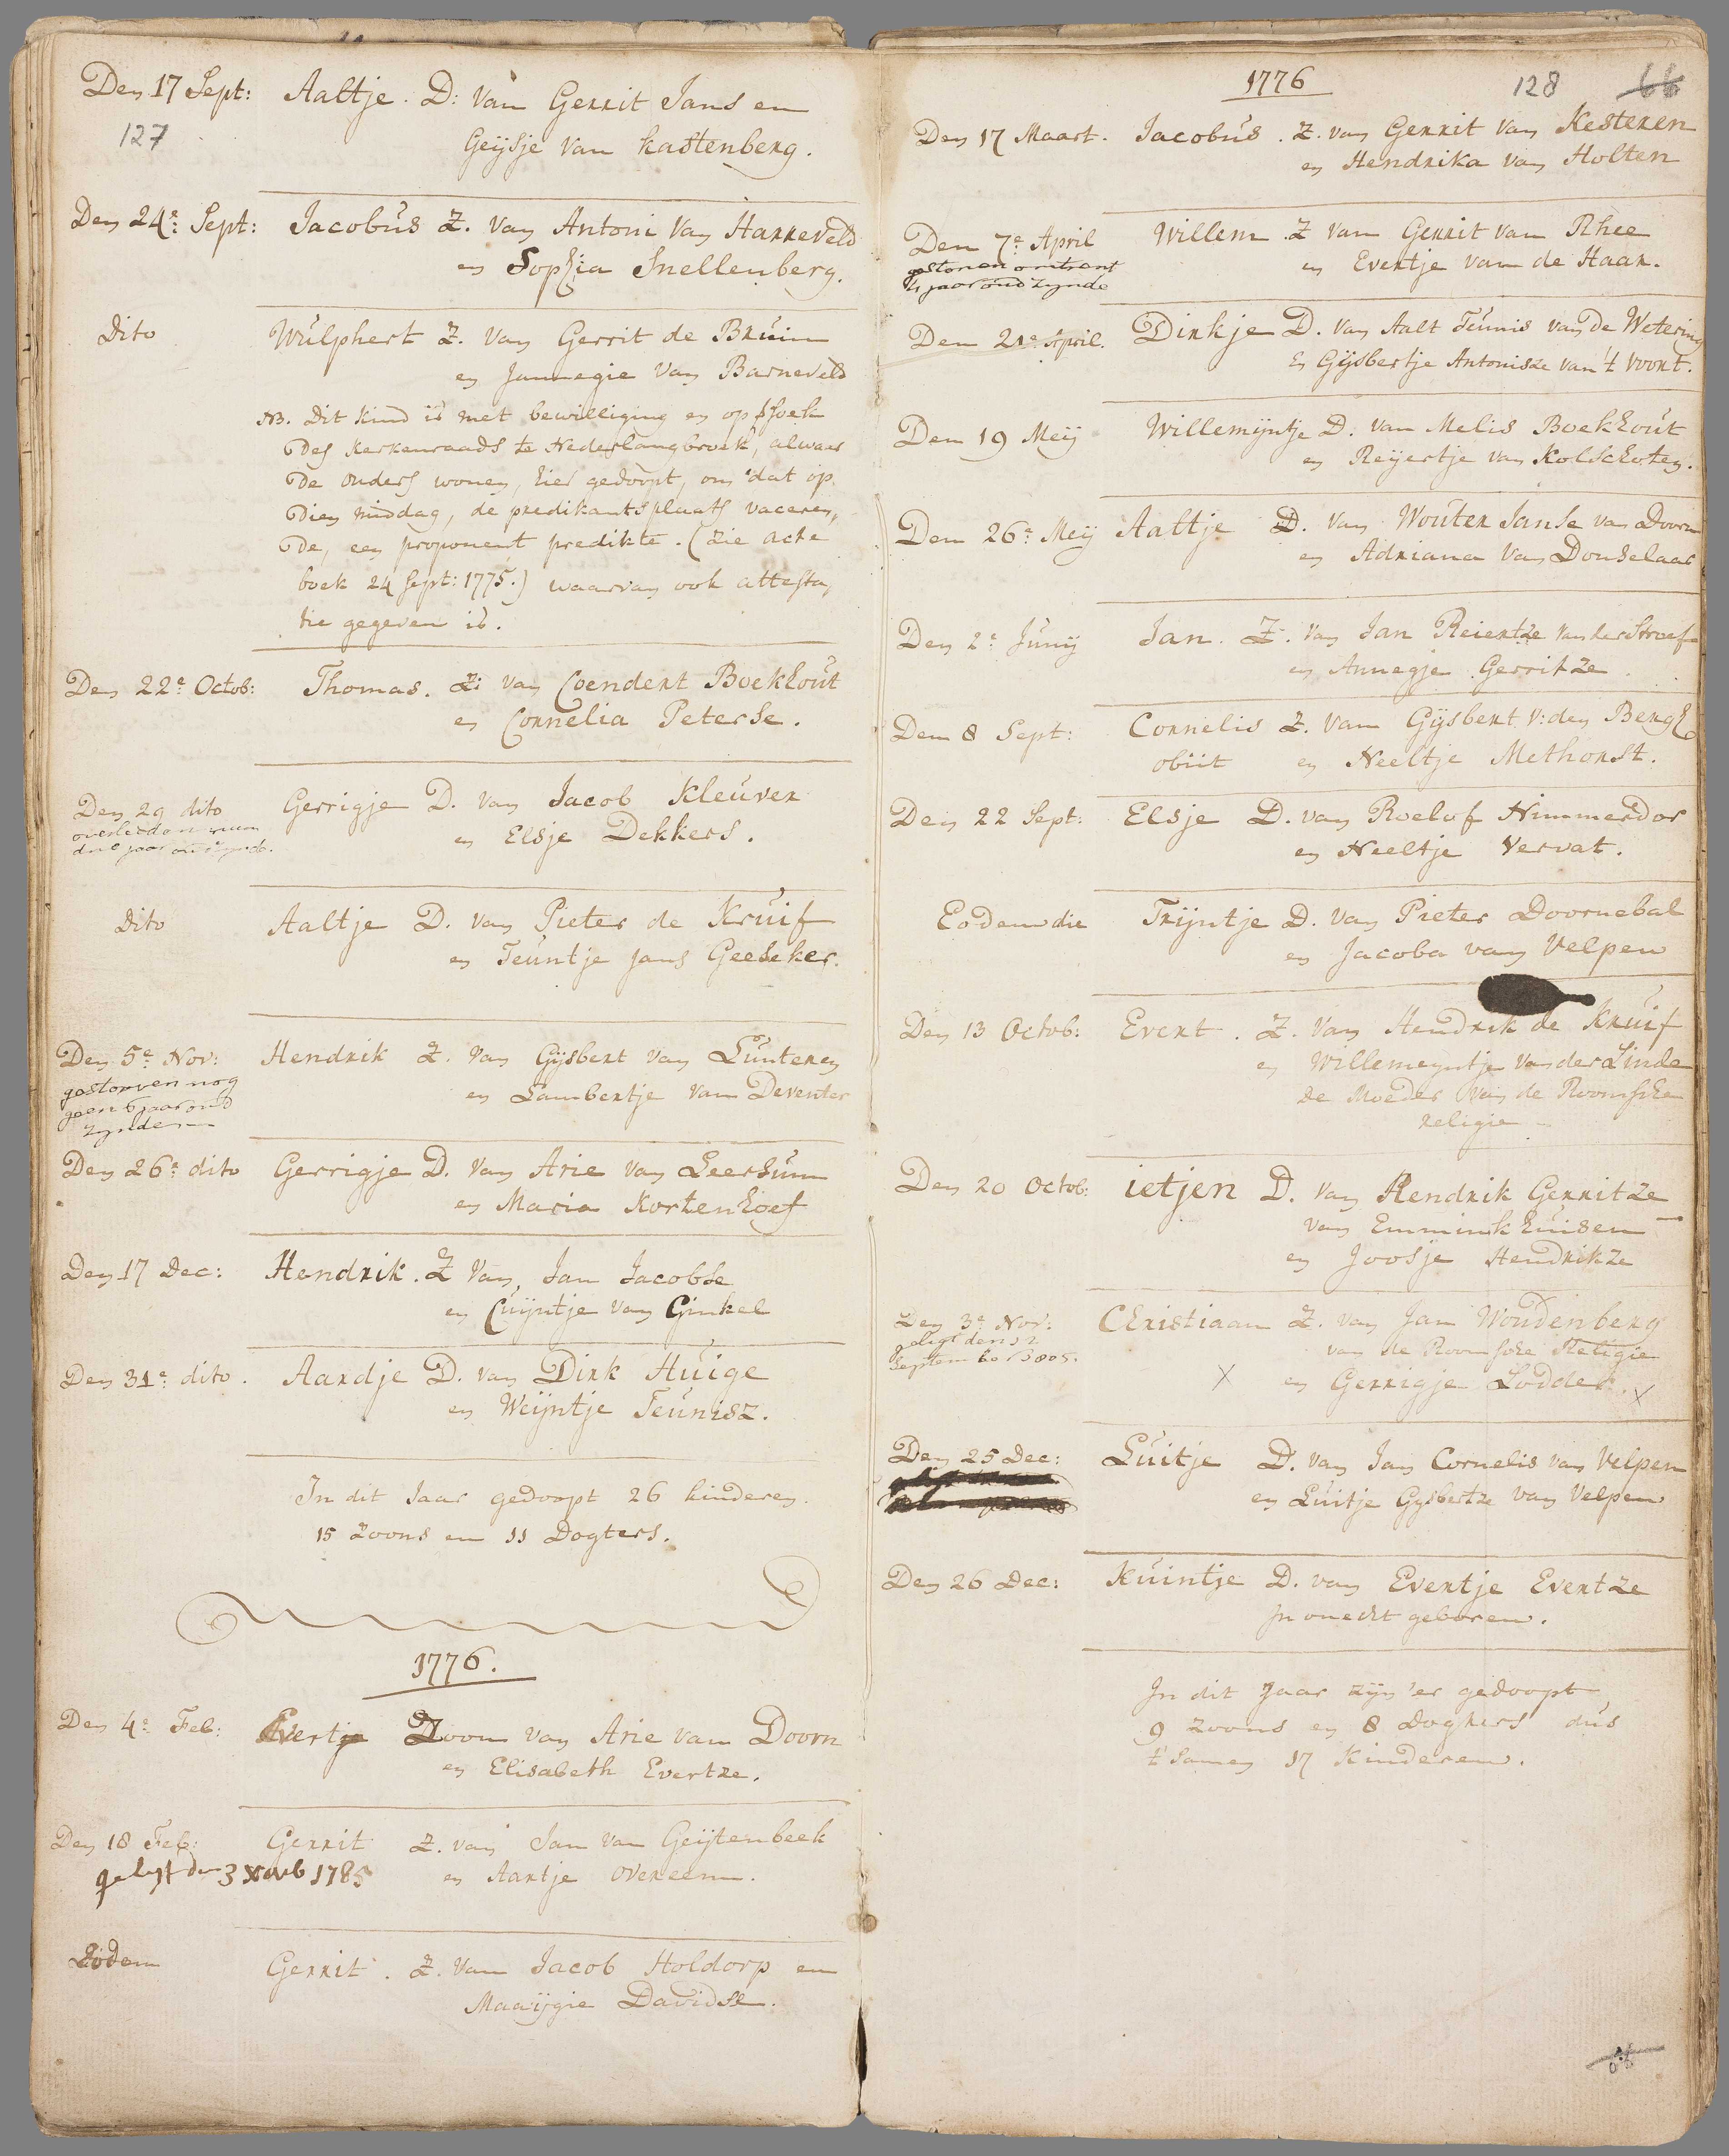 Den 17 Sept: Aaltje. D: van Gerrit Jans en
127 Geijsje van kastenberg.
Den 24e: Sept: Jacobus Z. van Antoni van Harreveld
en Sophia Snellenberg.
Dito Wulphert Z. van Gerrit de Bruin
en Jannegie van Barneveld
NB. Dit kind is met bewilliging en op
des kerkenraads te Nederlangbroek, alwaar
de ouders wonen, hier gedoopt, om dat op
dien middag, de predikantsplaats vaceren,
de, een proponent predikte. (zie acte
boek 24 Sept: 1775.) waarvan ook attesta,
tie gegeven is.
Den 22e Octob: Thomas. Z: van Coendert Boekhout
en Cornelia Peterse.
Den 29 dito Gerrigje D. van Jacob Kleuver
overleden ruim en Elsje Dekkers.
drie jaar oud zynde.
Dito Aaltje D. van Pieter de Kruif
en Teuntje jans Geeseker.
Den 5e Nov: Hendrik Z. van Gijsbert van Lunteren
gestorven nog en Lambertje van Deventer
geen 6 jaar oud
zynde
Den 26e: dito Gerrigje D. van Arie van Leersum
en Maria Kortenhoef
Den 17 Dec: Hendrik. Z van Jan Jacobse
en Cuijntje van Ginkel
Den 31e: dito. Aardje D. van Dirk Huige
en Weijntje Teunisz.
In dit Jaar gedoopt 26 kinderen.
15 Zoons en 11 Dogters.
1776.
Den 4e: Feb: Evert Zoon van Arie van Doorn
en Elisabeth Evertze.
Den 18 Feb: Gerrit Z. van Jan van Geijtenbeek
gelyt den 3 Novb 1785 en Aartje overeem.
Eodem Gerrit. Z. van Jacob Holdorp en
Maaijgie Davidse.
1776 128 66
Den 17 Maart. Jacobus. Z. van Gerrit van Kesteren
en Hendrika van Holten
Den 7e April Willem. Z van Gerrit van Rhee
gestorven omtrent en Evertje van de Haar.
jaar oud zynde
Den 21e April. Dirkje D. van Aalt Teunis van de Wetering
En Gijsbertje Antonisze van 't voort.
Den 19 Meij Willemijntje D. van Melis Boekhout
en Reijertje van Kolschoten.
Den 26e: Meij Aaltje D. van Wouter Janse van Doorn
en Adriana van Donselaar
Den 2e Junij Jan. Z. van Jan Reiertze van der Stroef
en Annegje Gerritze.
Den 8 Sept: Cornelis Z. van Gijsbert v: den Bergh
obiit en Neeltje Methorst.
Den 22 Sept: Elsje D. van Roelof Himmerdor
en Neeltje Vervat.
Eodem die Trijntje D. van Pieter Doornebal
en Jacoba van Velpen
Den 13 Octob: Evert. Z. van Hendrik de Kruif
en Willemeyntje van der Linde
de Moeder van de Roomsche
religie
Den 20 Octob: ietjen D. van Hendrik Gerritze
van Emminkhuisen
en Joosje Hendrikze
Den 3e Nov: Christiaan Z. van Jan Woudenberg
gelyt den 12 van de Roomsche Religie
September 1805. X en Gerrigje Lodder. X
Den 25 Dec: Luitje D. van Jan Cornelis van Velpen
en Luitje Gysbertze van Velpen
Den 26 Dec: Kuintje D. van Evertje Evertze
In onecht geboren.
In dit Jaar zijn 'er gedoopt
9 Zoons en 8 Doghters dus
t' samen 17 Kinderen.